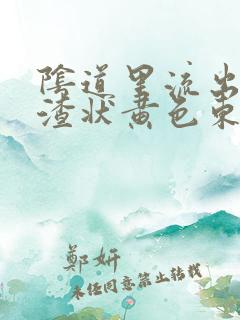 陰道里流出
渣状黄色東
鄭妍
未经同意禁止转载